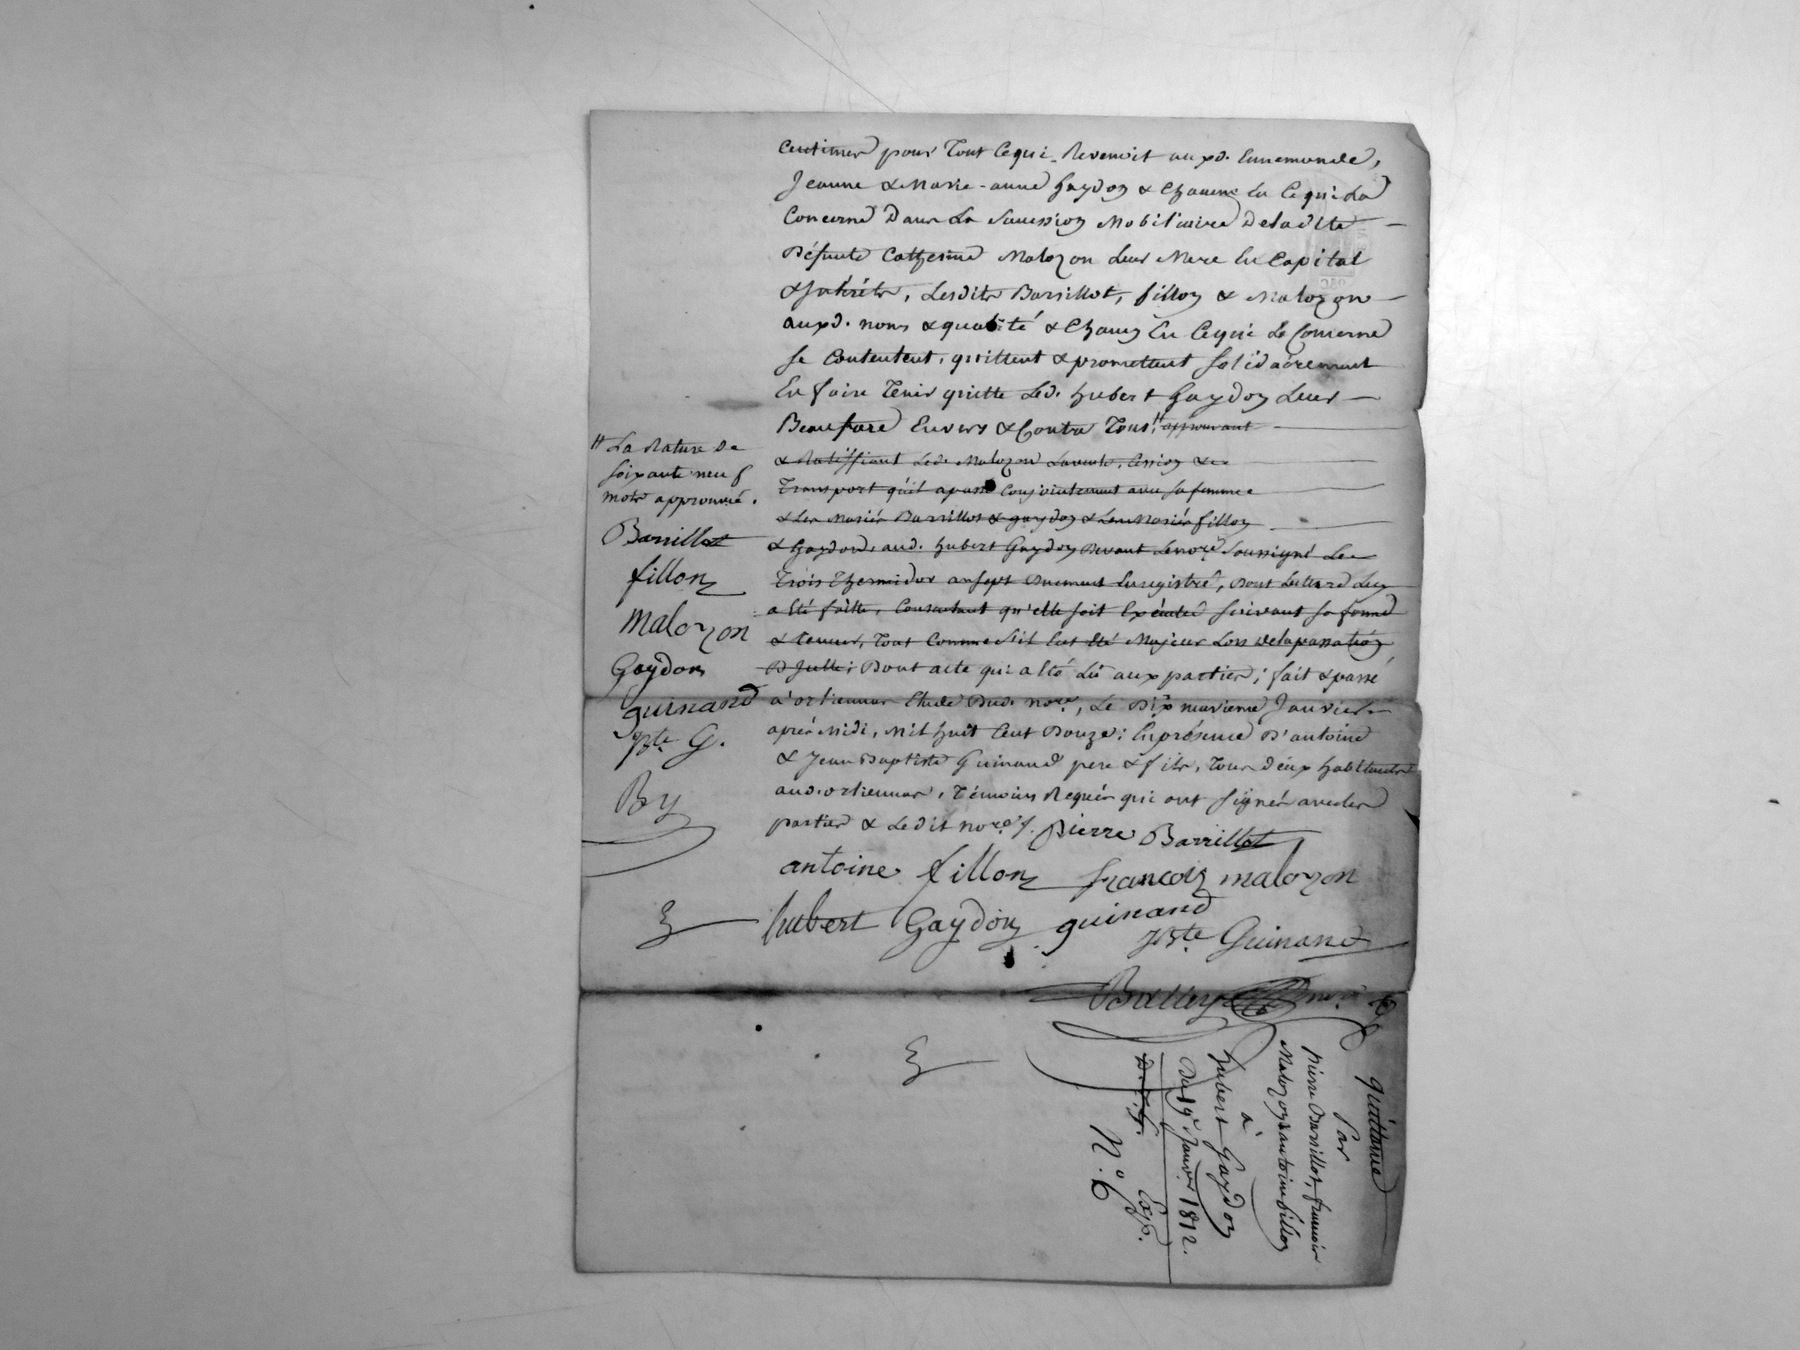 Centimes pour Tout Cequi Revenoit auxd. Ennemonde,
Jeanne & Marie-anne Gaydon & Chacune En Cequi La
Concerne Dans La Succession Mobiliaire Deladite
Défunte Catherine Malozon Leur Mere En Capital
& Intérêts, Lesdits Barrillot, fillon & Malozon
auxd. noms & qualité & Chacun En Cequi Le Concerne
Se Contentent, quittent & promettent Solidairement
En faire Tenir quitte Led. hubert Gaydon Leur
Beaufrere Envers & Contre Tous, # approuvant
& Ratiffiant Led. Malozon La vente, Cession &
Transport qu'il a passé Conjointement avec sa femme
& Les Mariés Barrillot & gaydon & Les Mariés fillon
& Gaydon, aud. hubert Gaydon Devant Lenore Soussigné Le
Trois Thermidor an sept Duement Enregistré, Dont Lecture Luy
a Eté faitte, Consentant qu'elle soit Exécutée suivant sa forme
& teneur, Tout Comme S'il Eut Eté Majeur Lors Delapassation
D'Icelle; Dont acte qui a Eté Lû aux parties; fait & passé
à ortiennas Etude Dud. nore, Le Dix neuvieme Janvier
après Midi, Mil huit Cent Douze; En présence D'antoine
& Jean Baptiste Guinand pere & fils, Tous deux habitants
aud. ortiennas, Témoins Requis qui ont signé avec les
parties & Ledit nore ./. pierre Barrillot
antoine fillon francois malozon
hubert Gaydon guinand
JBte Guinand
nore
# La Rature de
soixante neuf
mots approuvée.
Barrillot
fillon
Malozon
Gaydon
guinand
JBte G.
quittance
Par
pierre Barrillot, francois
Malozon & antoine fillon
à
hubert Gaydon
Du 19e Janvier 1812.
Exp.
N.o 6